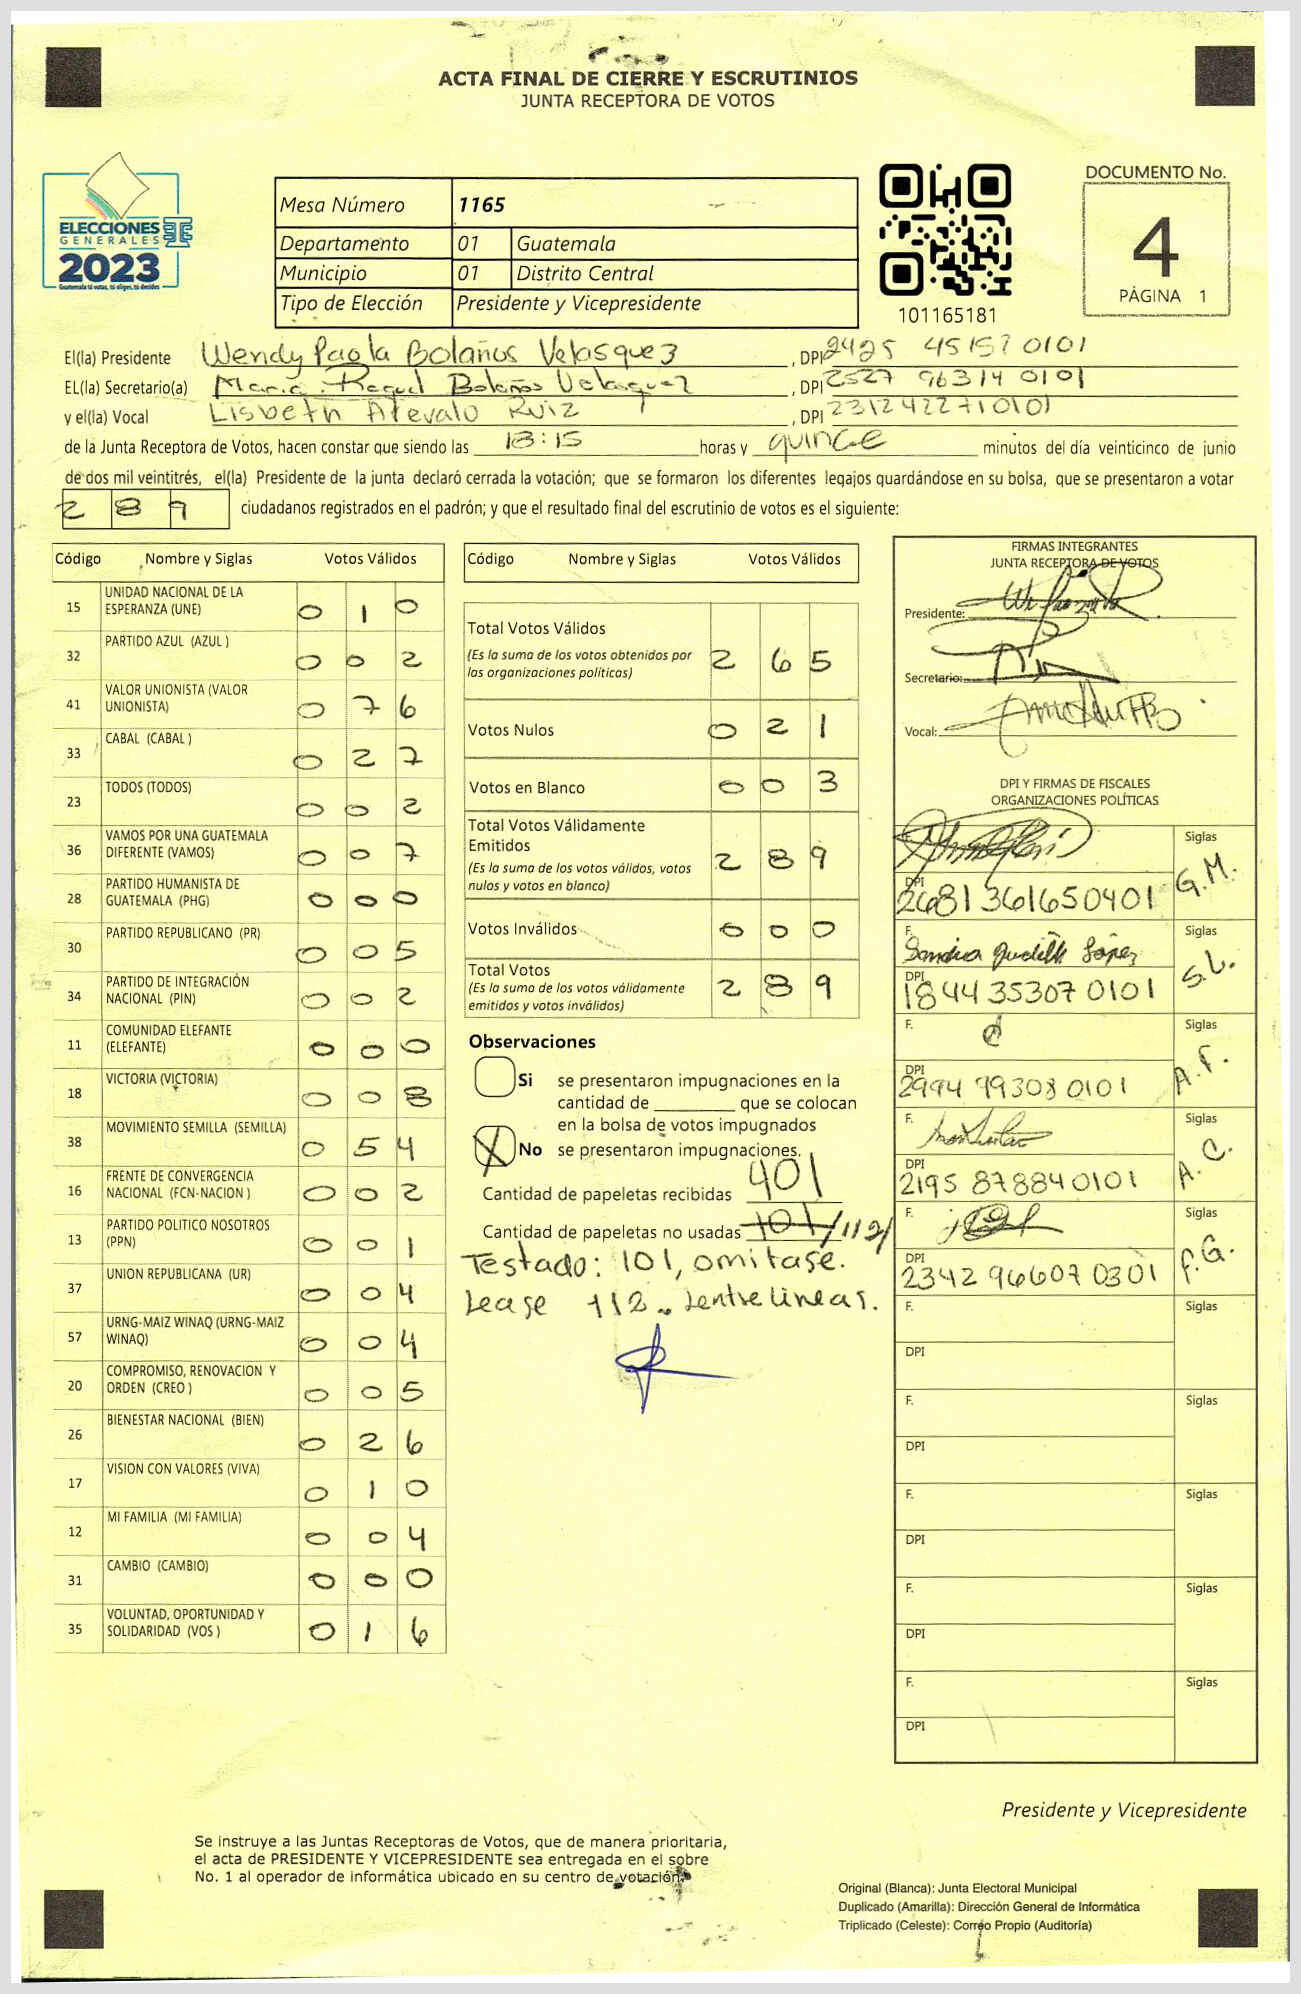 ACTA FINAL DE CIERRE Y ESCRUTINIOS
JUNTA RECEPTORA DE VOTOS
ELECCIONES
GENERALES
2023
Guatemala tú votas, tú eliges, tú decides
Mesa Número 1165
Departamento 01 Guatemala
Municipio 01 Distrito Central
Tipo de Elección Presidente y Vicepresidente
101165181
DOCUMENTO No.
4
PÁGINA 1
El(la) Presidente Wendy Paola Bolaños Velasquez, DPI 2425 45157 0101
EL(la) Secretario(a) María Raquel Bolaños Velasquez, DPI 2527 96314 0101
y el(la) Vocal Lisbeth Arevalo Ruiz, DPI 2312422710101
de la Junta Receptora de Votos, hacen constar que siendo las 18:15 horas y quince minutos del día veinticinco de junio
de dos mil veintitrés, el(la) Presidente de la junta declaró cerrada la votación; que se formaron los diferentes legajos quardándose en su bolsa, que se presentaron a votar
2 8 9 ciudadanos registrados en el padrón; y que el resultado final del escrutinio de votos es el siguiente:
Código Nombre y Siglas Votos Válidos
15 UNIDAD NACIONAL DE LA
ESPERANZA (UNE) 0 1 0
32 PARTIDO AZUL (AZUL ) 0 0 2
41 VALOR UNIONISTA (VALOR
UNIONISTA) 0 7 6
33 CABAL (CABAL ) 0 2 7
23 TODOS (TODOS) 0 0 2
36 VAMOS POR UNA GUATEMALA
DIFERENTE (VAMOS) 0 0 7
28 PARTIDO HUMANISTA DE
GUATEMALA (PHG) 0 0 0
30 PARTIDO REPUBLICANO (PR) 0 0 5
34 PARTIDO DE INTEGRACIÓN
NACIONAL (PIN) 0 0 2
11 COMUNIDAD ELEFANTE
(ELEFANTE) 0 0 0
18 VICTORIA (VICTORIA) 0 0 8
38 MOVIMIENTO SEMILLA (SEMILLA) 0 5 4
16 FRENTE DE CONVERGENCIA
NACIONAL (FCN-NACION ) 0 0 2
13 PARTIDO POLITICO NOSOTROS
(PPN) 0 0 1
37 UNION REPUBLICANA (UR) 0 0 4
57 URNG-MAIZ WINAQ (URNG-MAIZ
WINAQ) 0 0 4
20 COMPROMISO, RENOVACION Y
ORDEN (CREO ) 0 0 5
26 BIENESTAR NACIONAL (BIEN) 0 2 6
17 VISION CON VALORES (VIVA) 0 1 0
12 MI FAMILIA (MI FAMILIA) 0 0 4
31 CAMBIO (CAMBIO) 0 0 0
35 VOLUNTAD, OPORTUNIDAD Y
SOLIDARIDAD (VOS ) 0 1 6
Código Nombre y Siglas Votos Válidos
Total Votos Válidos
(Es la suma de los votos obtenidos por
las organizaciones políticas) 2 6 5
Votos Nulos 0 2 1
Votos en Blanco 0 0 3
Total Votos Válidamente
Emitidos
(Es la suma de los votos válidos, votos
nulos y votos en blanco) 2 8 9
Votos Inválidos 0 0 0
Total Votos
(Es la suma de los votos válidamente
emitidos y votos inválidos) 2 8 9
Observaciones
Si se presentaron impugnaciones en la
cantidad de ________ que se colocan
en la bolsa de votos impugnados
X No se presentaron impugnaciones.
Cantidad de papeletas recibidas 401
Cantidad de papeletas no usadas 101/112/
Testado: 101, omitase.
Lease 112.. Entrelineas.
FIRMAS INTEGRANTES
JUNTA RECEPTORA DE VOTOS
Presidente:
Secretario:
Vocal:
DPI Y FIRMAS DE FISCALES
ORGANIZACIONES POLÍTICAS
F. Siglas G.M.
DPI 2681 361650401
F. Sandra Judith López Siglas S.L.
DPI 1844 35307 0101
F. Siglas A.F.
DPI 2994 99308 0101
F. Siglas A.C.
DPI 2195 87884 0101
F. Siglas F.G.
DPI 2342 96607 0301
F. Siglas
DPI
F. Siglas
DPI
F. Siglas
DPI
F. Siglas
DPI
F. Siglas
DPI
Presidente y Vicepresidente
Se instruye a las Juntas Receptoras de Votos, que de manera prioritaria,
el acta de PRESIDENTE Y VICEPRESIDENTE sea entregada en el sobre
No. 1 al operador de informática ubicado en su centro de votación.
Original (Blanca): Junta Electoral Municipal
Duplicado (Amarilla): Dirección General de Informática
Triplicado (Celeste): Correo Propio (Auditoría)